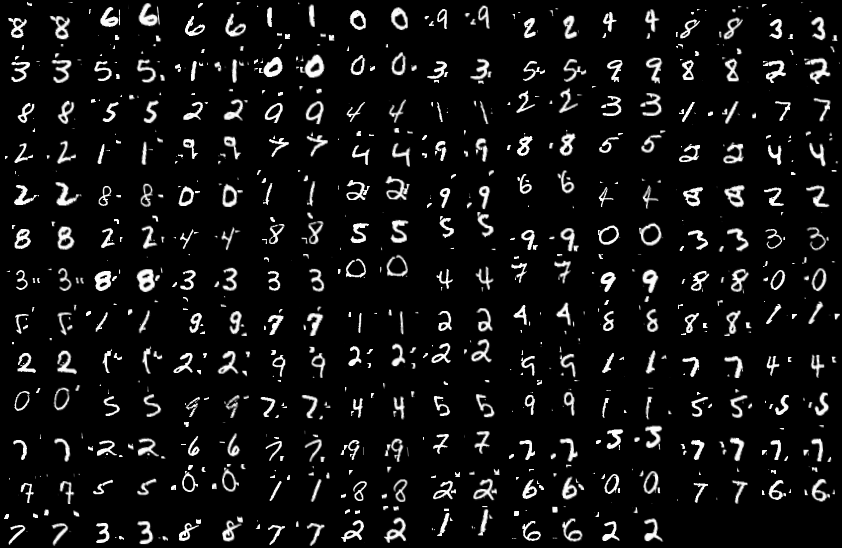 8 8 6 6 6 6 1 1 0 0 9 9 2 2 4 4 8 8 3 3
3 3 5 5 1 1 0 0 0 0 3 3 5 5 9 9 8 8 2 2
8 8 5 5 2 2 9 9 4 4 1 1 2 2 3 3 1 1 7 7
2 2 1 1 9 9 7 7 4 4 9 9 8 8 5 5 2 2 4 4
2 2 8 8 0 0 1 1 2 2 9 9 6 6 4 4 8 8 2 2
8 8 2 2 4 4 8 8 5 5 5 5 9 9 0 0 3 3 3 3
3 3 8 8 3 3 3 3 0 0 4 4 7 7 9 9 8 8 0 0
5 5 1 1 9 9 7 7 1 1 2 2 4 4 8 8 8 8 1 1
2 2 1 1 2 2 9 9 2 2 2 2 9 9 1 1 7 7 4 4
0 0 5 5 9 9 7 7 4 4 5 5 9 9 1 1 5 5 5 5
7 7 2 2 6 6 7 7 9 9 7 7 7 7 5 5 7 7 7 7
7 7 5 5 0 0 1 1 8 8 2 2 6 6 0 0 7 7 6 6
7 7 3 3 8 8 7 7 2 2 1 1 6 6 2 2